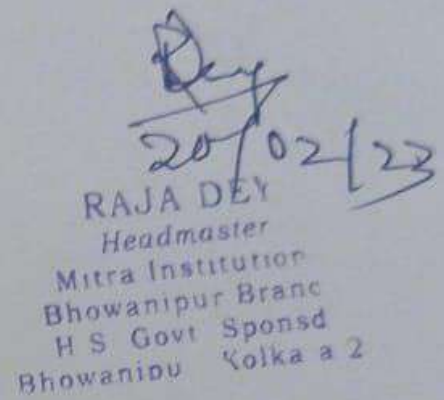 Dey
20/02/23
RAJA DEY
Headmaster
Mitra Institution
Bhowanipur Branc
H S Govt Sponsd
Bhowanipu Kolka a 2